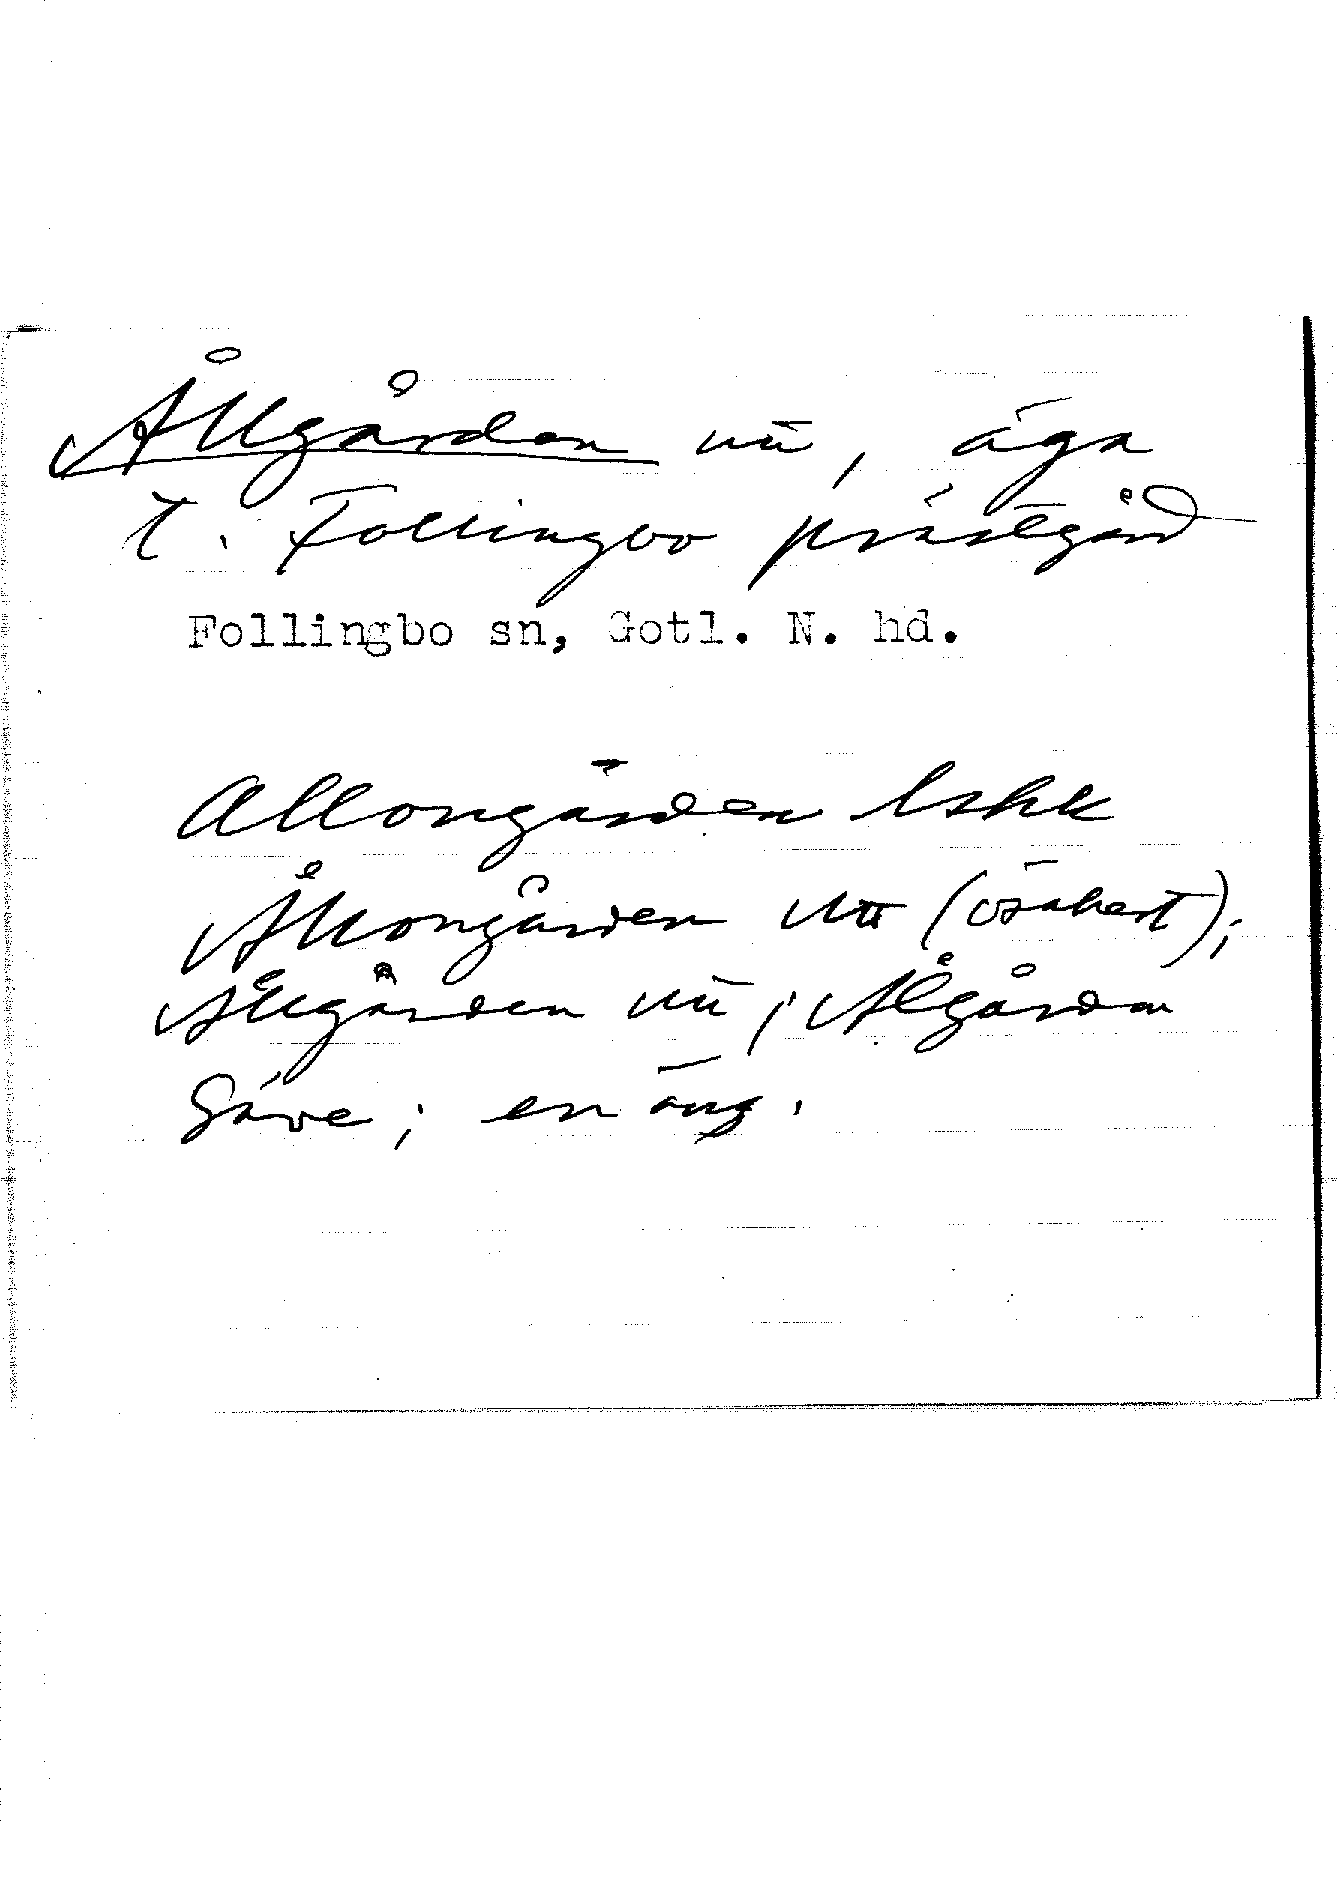 Ållgården nu, äga
t. Follingbo prästgård
Follingbo sn, Gotl. N. hd.
Allongården lskk
Ållongården utt (osäkert);
Ållgården nu; Ålgården
Säve; en äng.